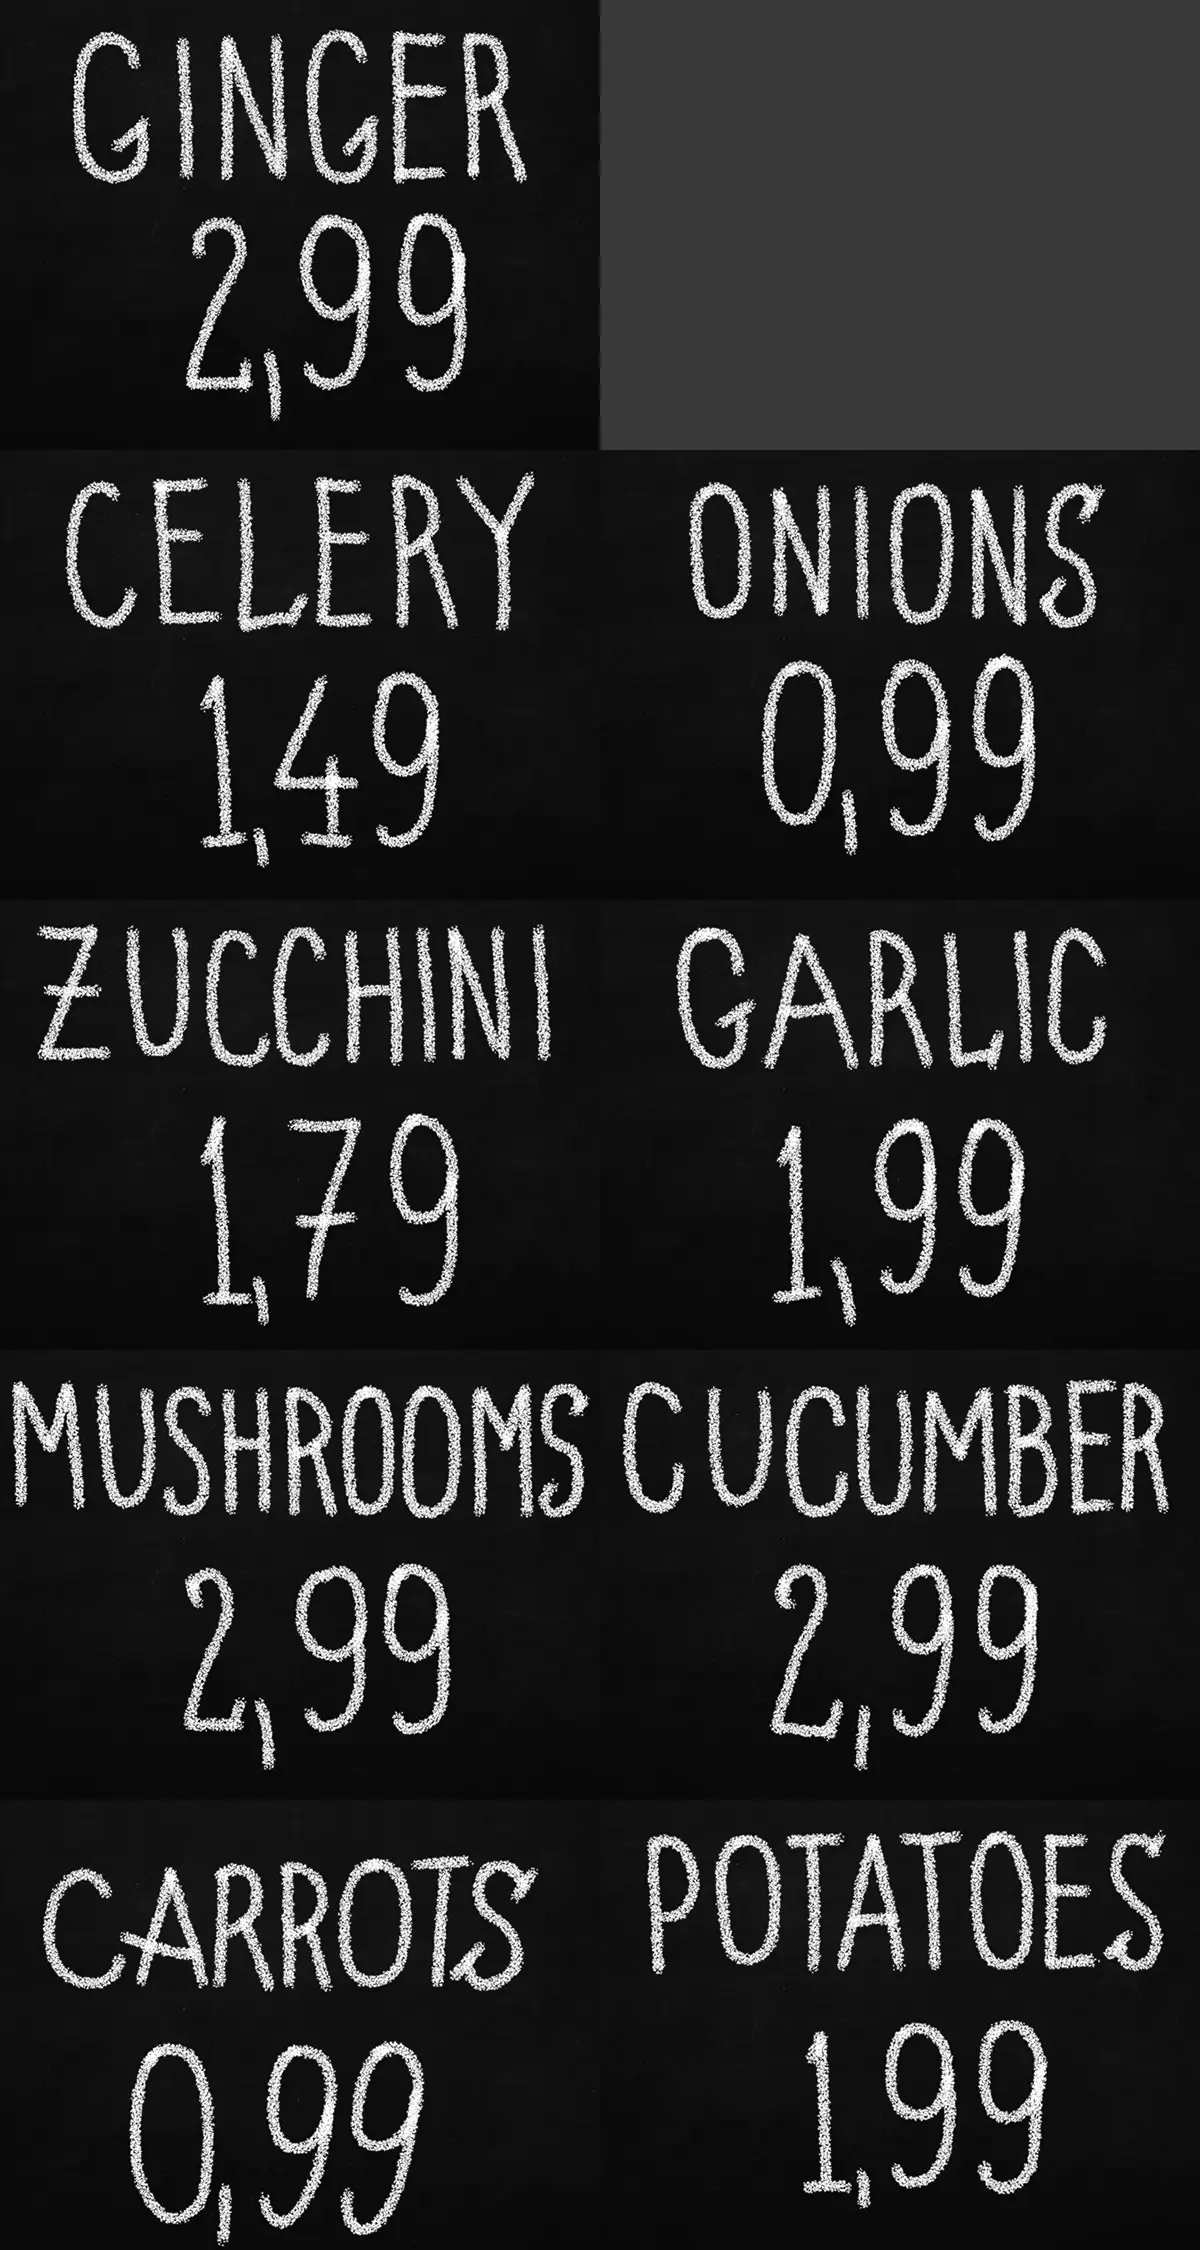 GINGER
2,99
CELERY
1,49
ONIONS
0,99
ZUCCHINI
1,79
GARLIC
1,99
MUSHROOMS
2,99
CUCUMBER
2,99
CARROTS
0,99
POTATOES
1,99